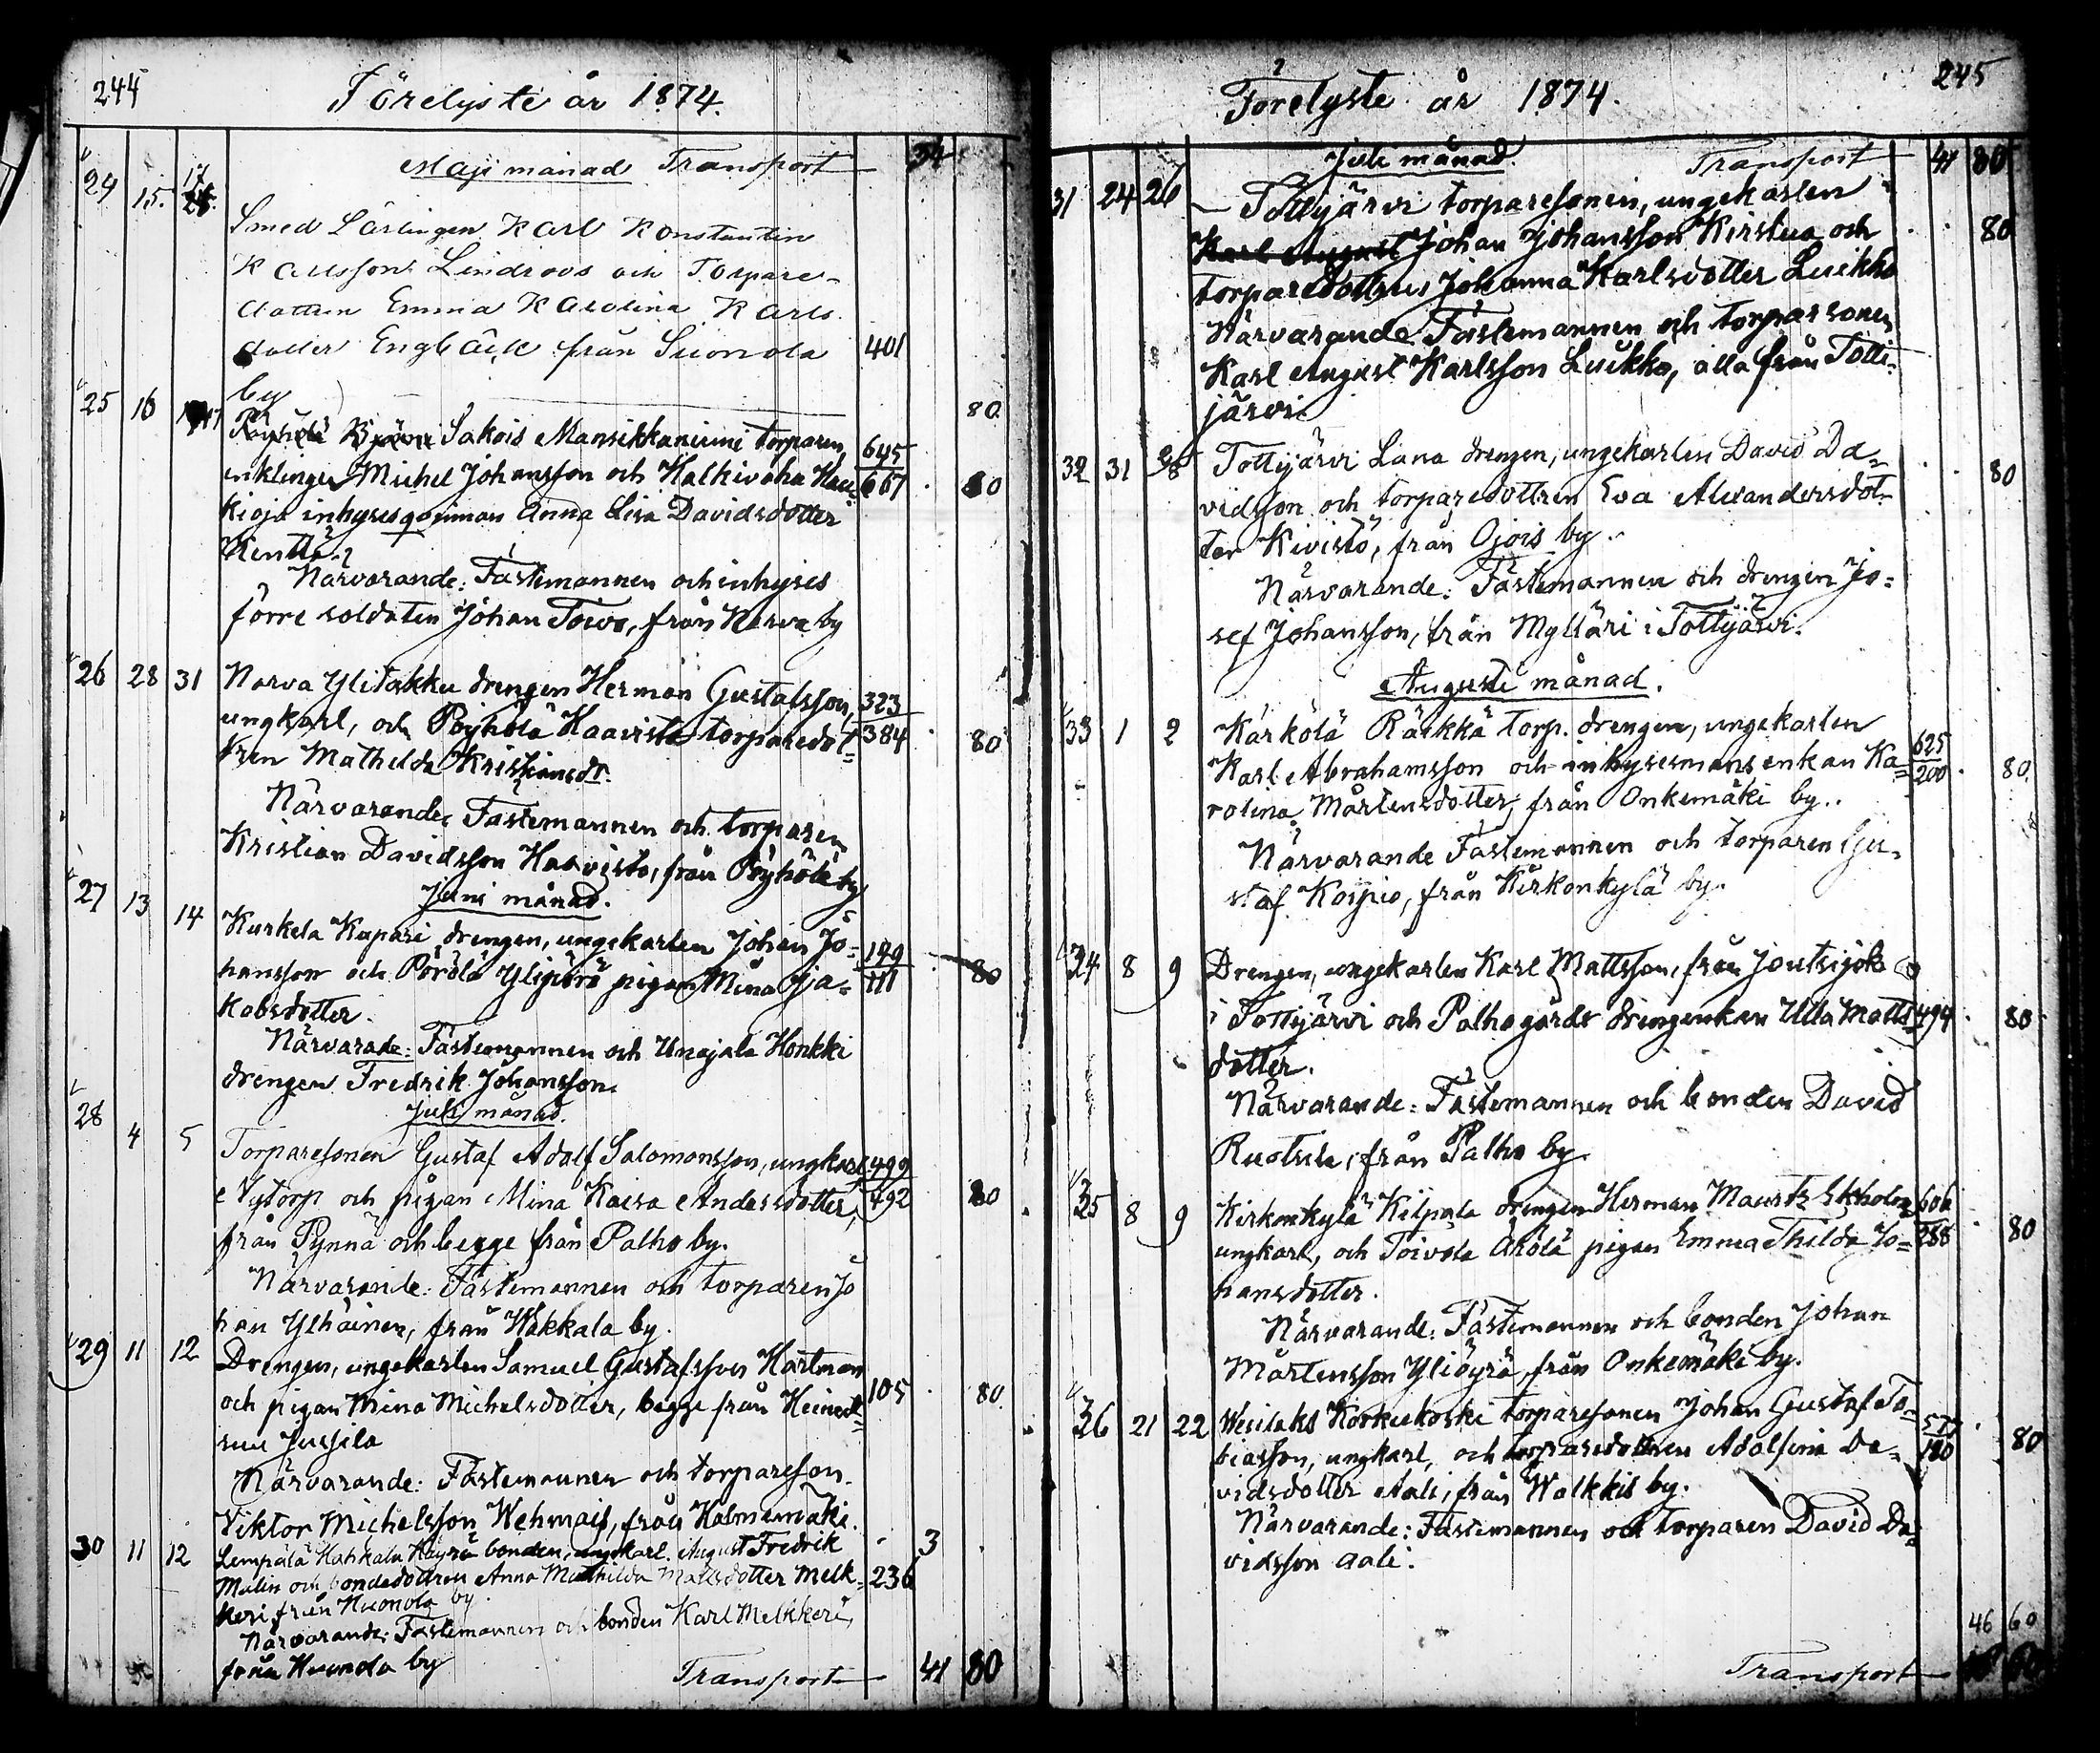 244
Förelyste år 1874.
Maji månad Transport 34
24 15. 17
Smed Lärlingen Karl Konstantin
Karlsson Lindroos och Torpare-
dottren Emma Karolina Karls
dotter Engbäck från Suonola 401
by 80.
25 16 17
Sakois Mansikkaniemi torparen, 645
enklingen Michel Johansson och Halkivaha Hau 667 80
kioja inhysesqvinnan Anna Lisa Davidsdotter
Kenttä.
Närvarande: Fästemannen och inhyses
förre soldaten Johan Toivo, från Narva by
26 28 31 Narva Ylitakku drengen Herman Gustafsson, 323
ungkarl, och Pöyhölä Haavisto torparedot- 384 80
tren Mathilda Kristiansdr.
Närvarande: Fästemannen och torparen
Kristian Davidsson Haavisto, från Pöyhölä by
Juni månad.
27 13 14 Kurkela Kupari drengen, ungekarlen Johan Jo- 199
hansson och Pörölä Ylipörö pigan Mina Ja- 111 80
kobsdotter.
Närvarade: Fästemannen och Unajala Honkki
drengen Fredrik Johansson.
Juli månad.
28 4 5 Torparesonen Gustaf Adolf Salomonsson, ungkarl, 499
Nytorp och pigan Mina Kaisa Andersdotter, 492 80
från Pynnä och begge från Palho by.
Närvarande: Fästemannen och torparen Jo
han Yihäinen, från Wakkala by.
29 11 12 Drengen, ungekarlen Samuel Gustafsson Hartman
och pigan Mina Michelsdotter, begge från Heined- 105 80.
suu Jussila
Närvarande: Fästemannen och torpareson.
Viktor Michelsson Wehmais, från Halmeenmäki.
30 11 12 Lempälä Hahkala Käyrä bonden, ungkarl. August Fredrik 3
Malin och bondedottren Anna Mathilda Mattsdotter Melk- 236
keri från Kuonola by
Närvarande: Fästemannen och bonden Karl Melkkeri,
från Kuonola by
Transport 41 80
245
Förelyste år 1874.
Juli månad. Transport 41 80
31 24 26 Tottijärvi torparesonen, ungekarlen
Karl August Johan Johansson Kirstua och 80
torparedottren Johanna Karlsdotter Luikko
Närvarande Fästemannen och torparsonen
Karl August Karlsson Luikko, alla från Totti-
järvi
32 31 Tottijärvi Lana drengen, ungekarlen David Da- 80
vidsson och torparedottren Eva Alexandersdot-
ter Kivistö, från Ojois by.
Närvarande: Fästemannen och drengen Jo-
sef Johansson, från Mylläri i Tottijärvi.
Augusti månad.
33 1 2 Kärkölä Räikkä torp. drengen, ungekarlen 625
Karl Abrahamsson och inhysesmansenkan Ka- 200 80.
rolina Mårtensdotter, från Onkemäki by.
Närvarande Fästemannen och torparen Gu-
staf Korpio, från Kirkonkylä by.
34 8 9 Drengen, ungekarlen Karl Mattsson, från Joutsijoki
i Tottijärvi och Palhogårds drengenkan Ulla Matts 494 80
dotter.
Närvarande: Fästemannen och bonden David
Ruotsila, från Palho by.
35 8 9 Kirkonkylä Kilpala drengen Herman Mauritz Ekholm, 606
ungkarl, och Toivola Arölä pigan Emma Thilda Jo- 288 80
hansdotter.
Närvarande: Fästemannen och bonden Johan
Mårtensson Yliöyrä, från Onkemäki by.
36 21 22 Wesilaks Korkeekoski torparesonen Johan Gustaf To- 577
biasson, ungkarl, och torparedottren Adolfina Da- 180 80
vidsdotter Aali, från Walkkis by.
Närvarande: Fästemannen och torparen David Da-
vidsson Aali.
46 60
Transport